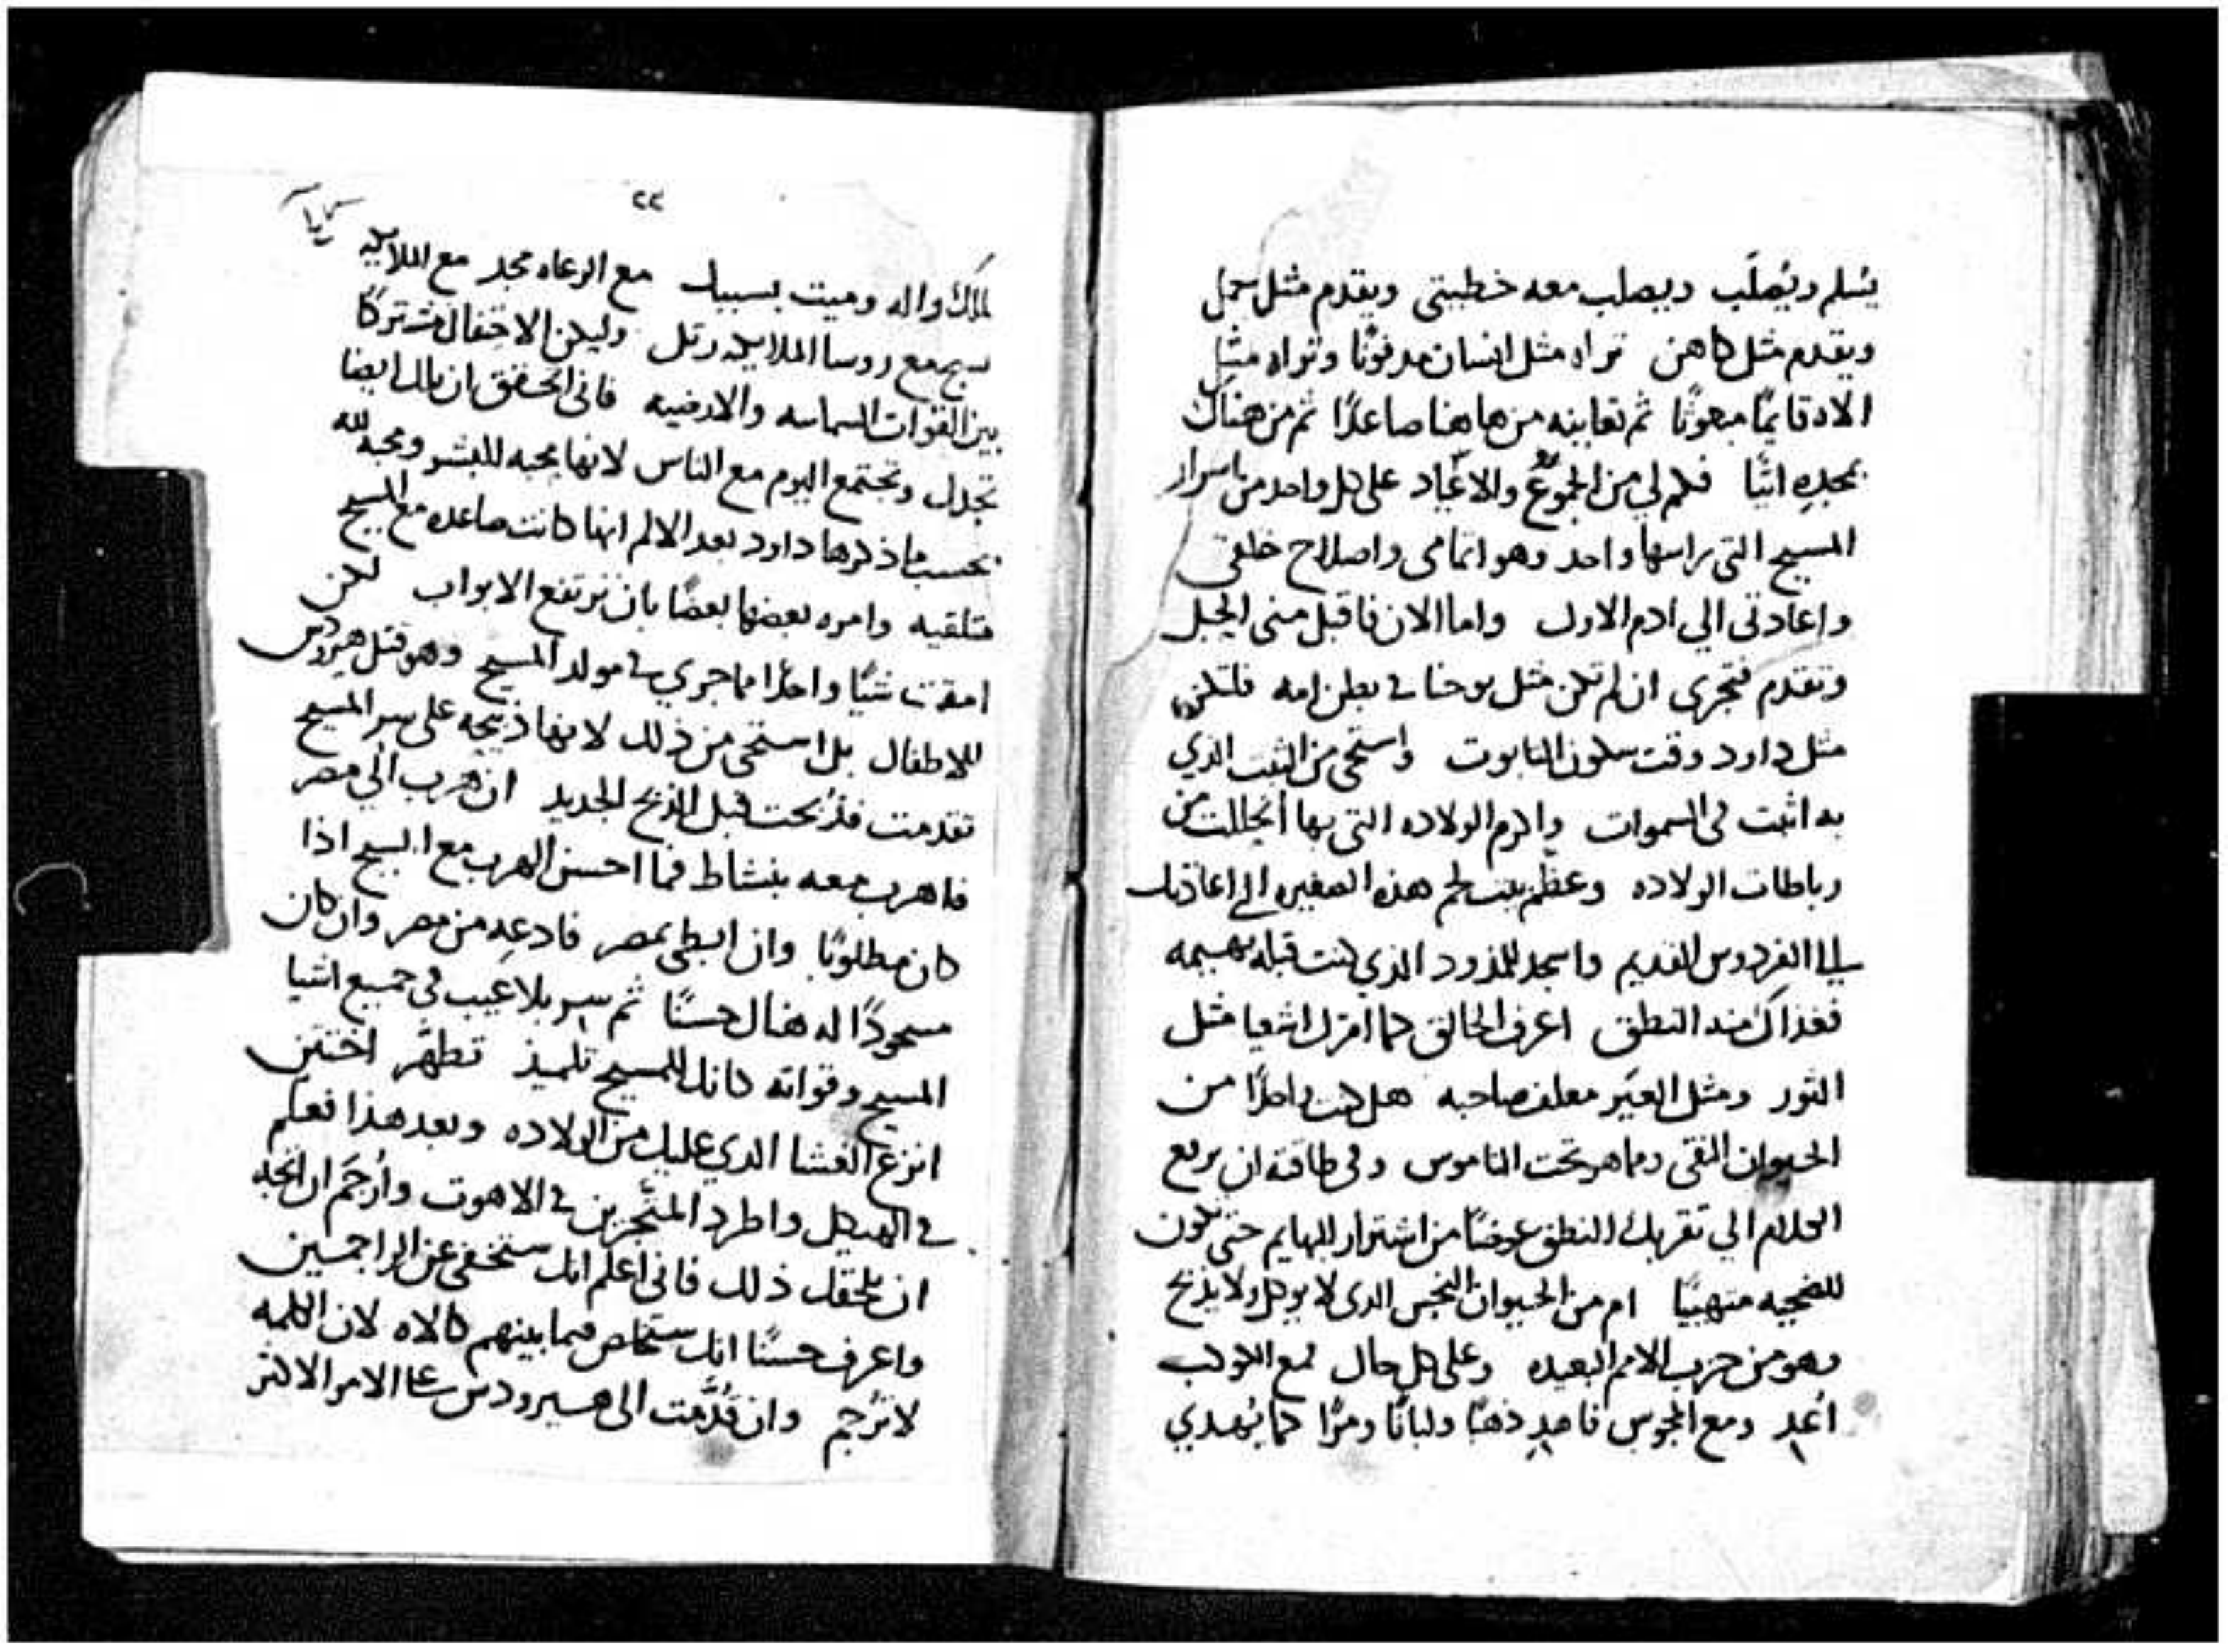 يُسلم ويُصلَب ويصلب معه خطيتي ويقدم مثل حمل
ويقدم مثل كاهن تراه مثل انسان مدفونًا وتراه مثل
الاه قايمًا مبعوثًا ثم تعاينه من هاهنا صاعدًا ثم من هناك
بمجدِه اتيًا فكم لي من الجموع والاعياد على كل واحد من اسرار
المسيح التي راسها واحد وهو اتمامي واصلاح خلقتي
واعادتي الي ادم الاول واما الان فاقبل مني الحبل
وتقدم فتجرى ان لم تكن مثل يوحنا في بطن امه فلتكن
مثل داود وقت سكون التابوت واستحى من الثبت الذي
به اثبت في السموات واكرم الولاده التي بها انحللت من
رباطات الولاده وعظّم بيت لحم هذه الصغيره التي اعادتك
الي الفردوس القديم واسجد للمذود الذي كنت قبله بهيمه
فغذاك منه النطق اعرف الخالق كما امرك اشعيا مثل
الثور ومثل العَير معلف صاحبه هل كنت واحدًا من
الحيوان النقى وما هو تحت الناموس وفي طاقته ان يرفع
الكلام الي تقريبك النطق عوضًا من اشترار البهايم حتى تكون
للضحيه متهييًا ام من الحيوان النجس الدى لا يوكل ولا يذبح
وهو من حزب الامم البعيده وعلى كل حال فمع الكوكب
اُغد ومع المجوس فاهدِ ذهبًا ولبانًا ومرًا كما يُهدي
٢٢
لملك واله وميت بسببك مع الرعاه مجد مع الملايكه
سبح مع روسا الملايكه رتل وليكن الاحتفال مشتركًا
بين القوات السماييه والارضيه فانى اتحقق ان تلك ايضا
تجدل وتجتمع اليوم مع الناس لانها محبه للبشر ومحبه لله
بحسب ما ذكرها داود بعد الالم انها كانت صاعده مع المسيح
متلقيه وامره بعضها بعضًا بان ترتفع الابواب لكن
امقت شيًا واحدًا مما جري في مولد المسيح وهو قتل هيرودس
للاطفال بل استحى من ذلك لانها ذبيحه على سر المسيح
تقدمت فذُبحت قبل الذبح الجديد ان هرب الي مصر
فاهرب معه بنشاط فما احسن الهرب مع المسيح اذا
كان مطلوبًا وان ابطى بمصر فادعِه من مصر وان كان
مسجودًا له هناك حسنًا ثم سر بلا عيب في جميع اشيا
المسيح وقواته كانك للمسيح تلميذ تطهّر اختتن
انزع الغشا الدي عليك من الولاده وبعد هذا فعلّم
في الهيكل واطرد المتّجرين في الاهوت واُرجَم ان اتجه
ان يلحقك ذلك فانى اعلم انك ستخفى عن الراجمين
واعرف حسنًا انك ستخاص فيما بينهم كالاه لان الكلمه
لا تُرجم وان قُدّمت الى هيرودس فعلى الامر الاكثر